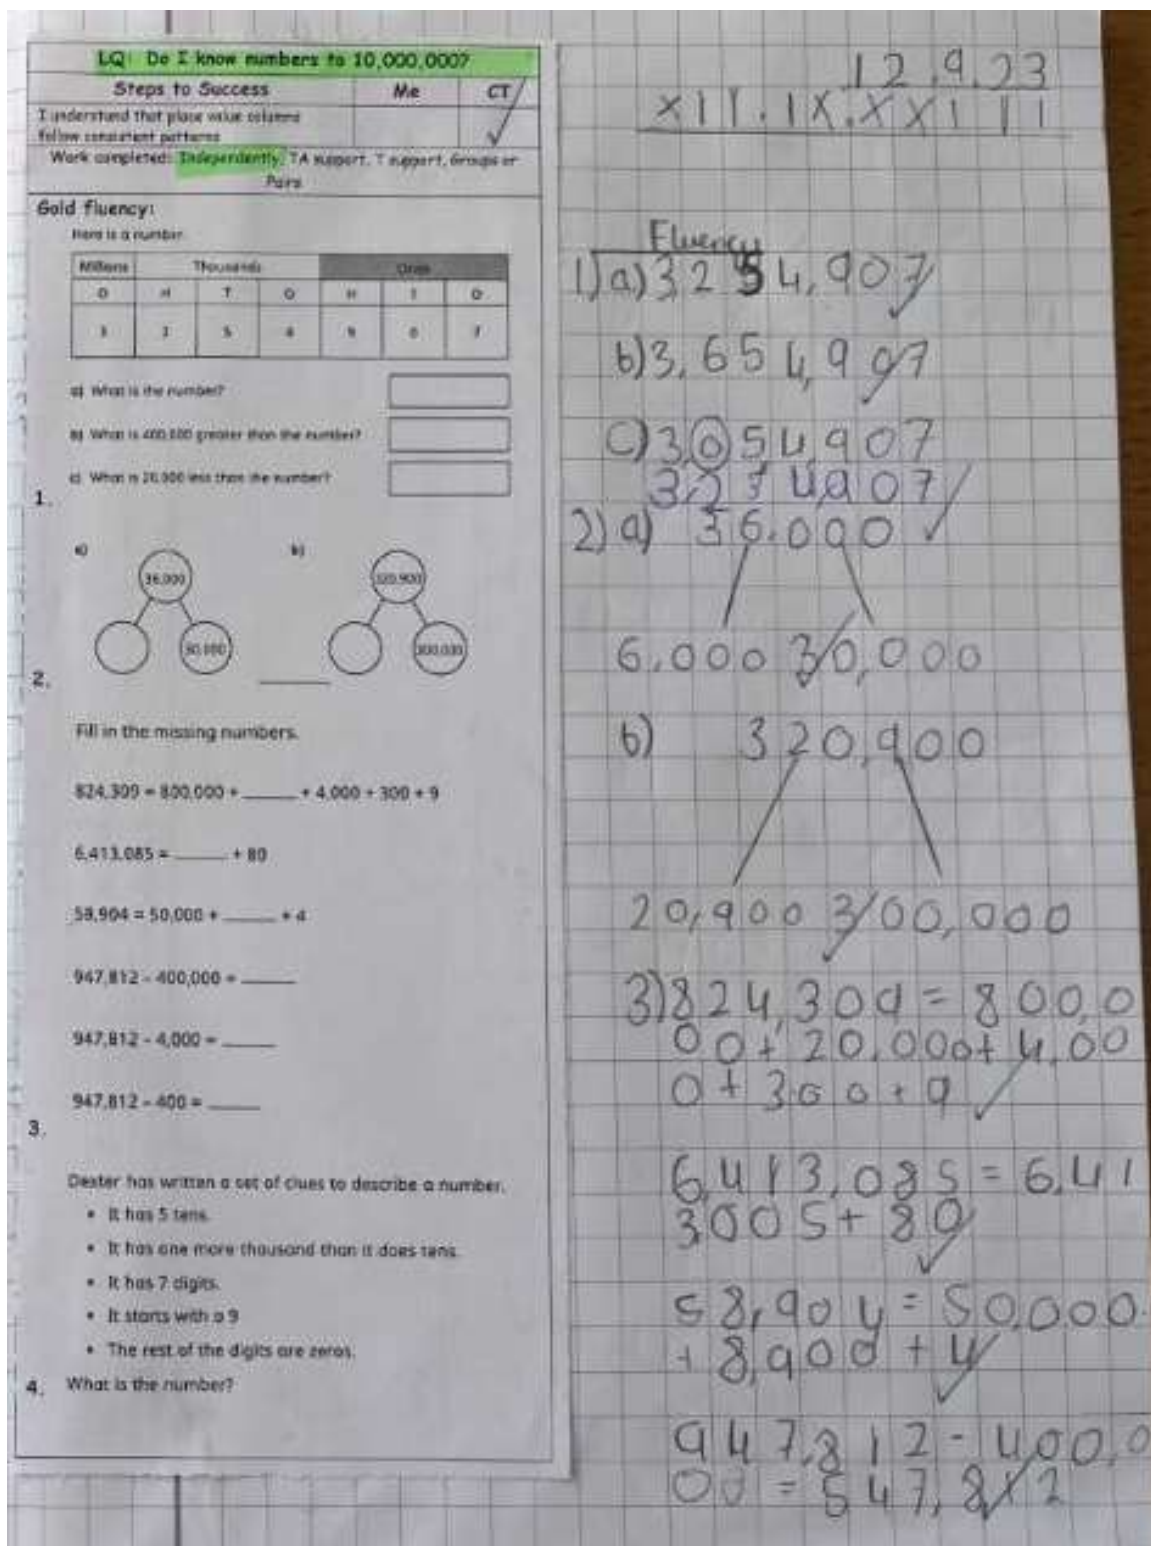 LQ: Do I know numbers to 10,000,000?
Steps to Success Me CT
I understand that place value columns
follow consistent patterns
Work completed: Independently, TA support, T support, Groups or
Pairs
Gold fluency:
Here is a number.
Millions Thousands Ones
O H T O H T O
3 2 5 4 9 0 7
a) What is the number?
b) What is 400,000 greater than the number?
c) What is 20,000 less than the number?
1.
a) b)
36,000 320,900
30,000 300,000
2.
Fill in the missing numbers.
824,309 = 800,000 + _____ + 4,000 + 300 + 9
6,413,085 = _____ + 80
58,904 = 50,000 + _____ + 4
947,812 - 400,000 = _____
947,812 - 4,000 = _____
947,812 - 400 = _____
3.
Dexter has written a set of clues to describe a number.
• It has 5 tens.
• It has one more thousand than it does tens.
• It has 7 digits.
• It starts with a 9
• The rest of the digits are zeros.
4. What is the number?
12.9.23
Fluency
1) a) 3,254,907
b) 3,654,907
c) 3,054,907
3,234,907
2) a) 36,000
6,000 30,000
b) 320,900
20,900 300,000
3) 824,309 = 800,0
00 + 20,000 + 4,00
0 + 300 + 9
6,413,085 = 6,41
3,005 + 80
58,904 = 50,000
+ 8,900 + 4
947,812 - 400,0
00 = 547,812